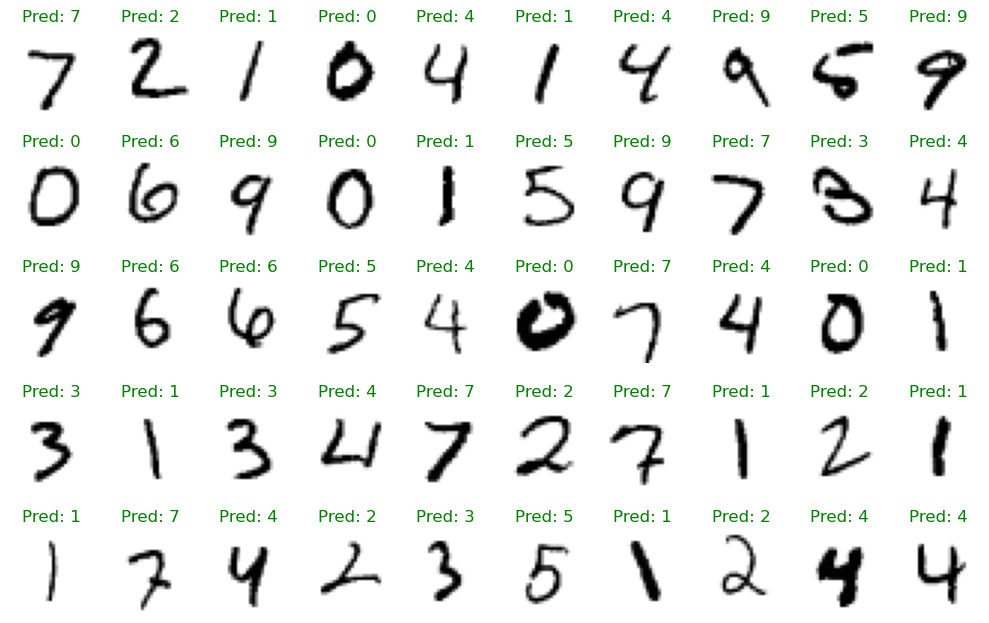 Pred: 7 Pred: 2 Pred: 1 Pred: 0 Pred: 4 Pred: 1 Pred: 4 Pred: 9 Pred: 5 Pred: 9
7 2 1 0 4 1 4 9 5 9
Pred: 0 Pred: 6 Pred: 9 Pred: 0 Pred: 1 Pred: 5 Pred: 9 Pred: 7 Pred: 3 Pred: 4
0 6 9 0 1 5 9 7 3 4
Pred: 9 Pred: 6 Pred: 6 Pred: 5 Pred: 4 Pred: 0 Pred: 7 Pred: 4 Pred: 0 Pred: 1
9 6 6 5 4 0 7 4 0 1
Pred: 3 Pred: 1 Pred: 3 Pred: 4 Pred: 7 Pred: 2 Pred: 7 Pred: 1 Pred: 2 Pred: 1
3 1 3 4 7 2 7 1 2 1
Pred: 1 Pred: 7 Pred: 4 Pred: 2 Pred: 3 Pred: 5 Pred: 1 Pred: 2 Pred: 4 Pred: 4
1 7 4 2 3 5 1 2 4 4